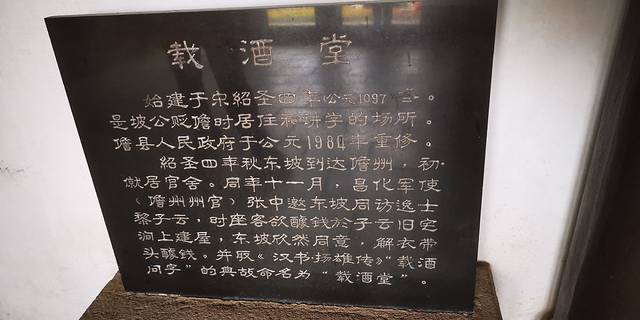 载酒堂
始建于宋紹圣四年公元1097年。
是坡公贬儋时居住和讲学的场所。
儋县人民政府于公元1984年重修。
紹圣四年秋东坡到达儋州，初
僦居官舍。同年十一月，昌化军使
（儋州州官）张中邀东坡同访逸士
黎子云，时座客欲醵錢於子云旧宅
涧上建屋，东坡欣然同意，解衣带
头醵錢。并取《汉书·扬雄传》“载酒
问字”的典故命名为“载酒堂”。